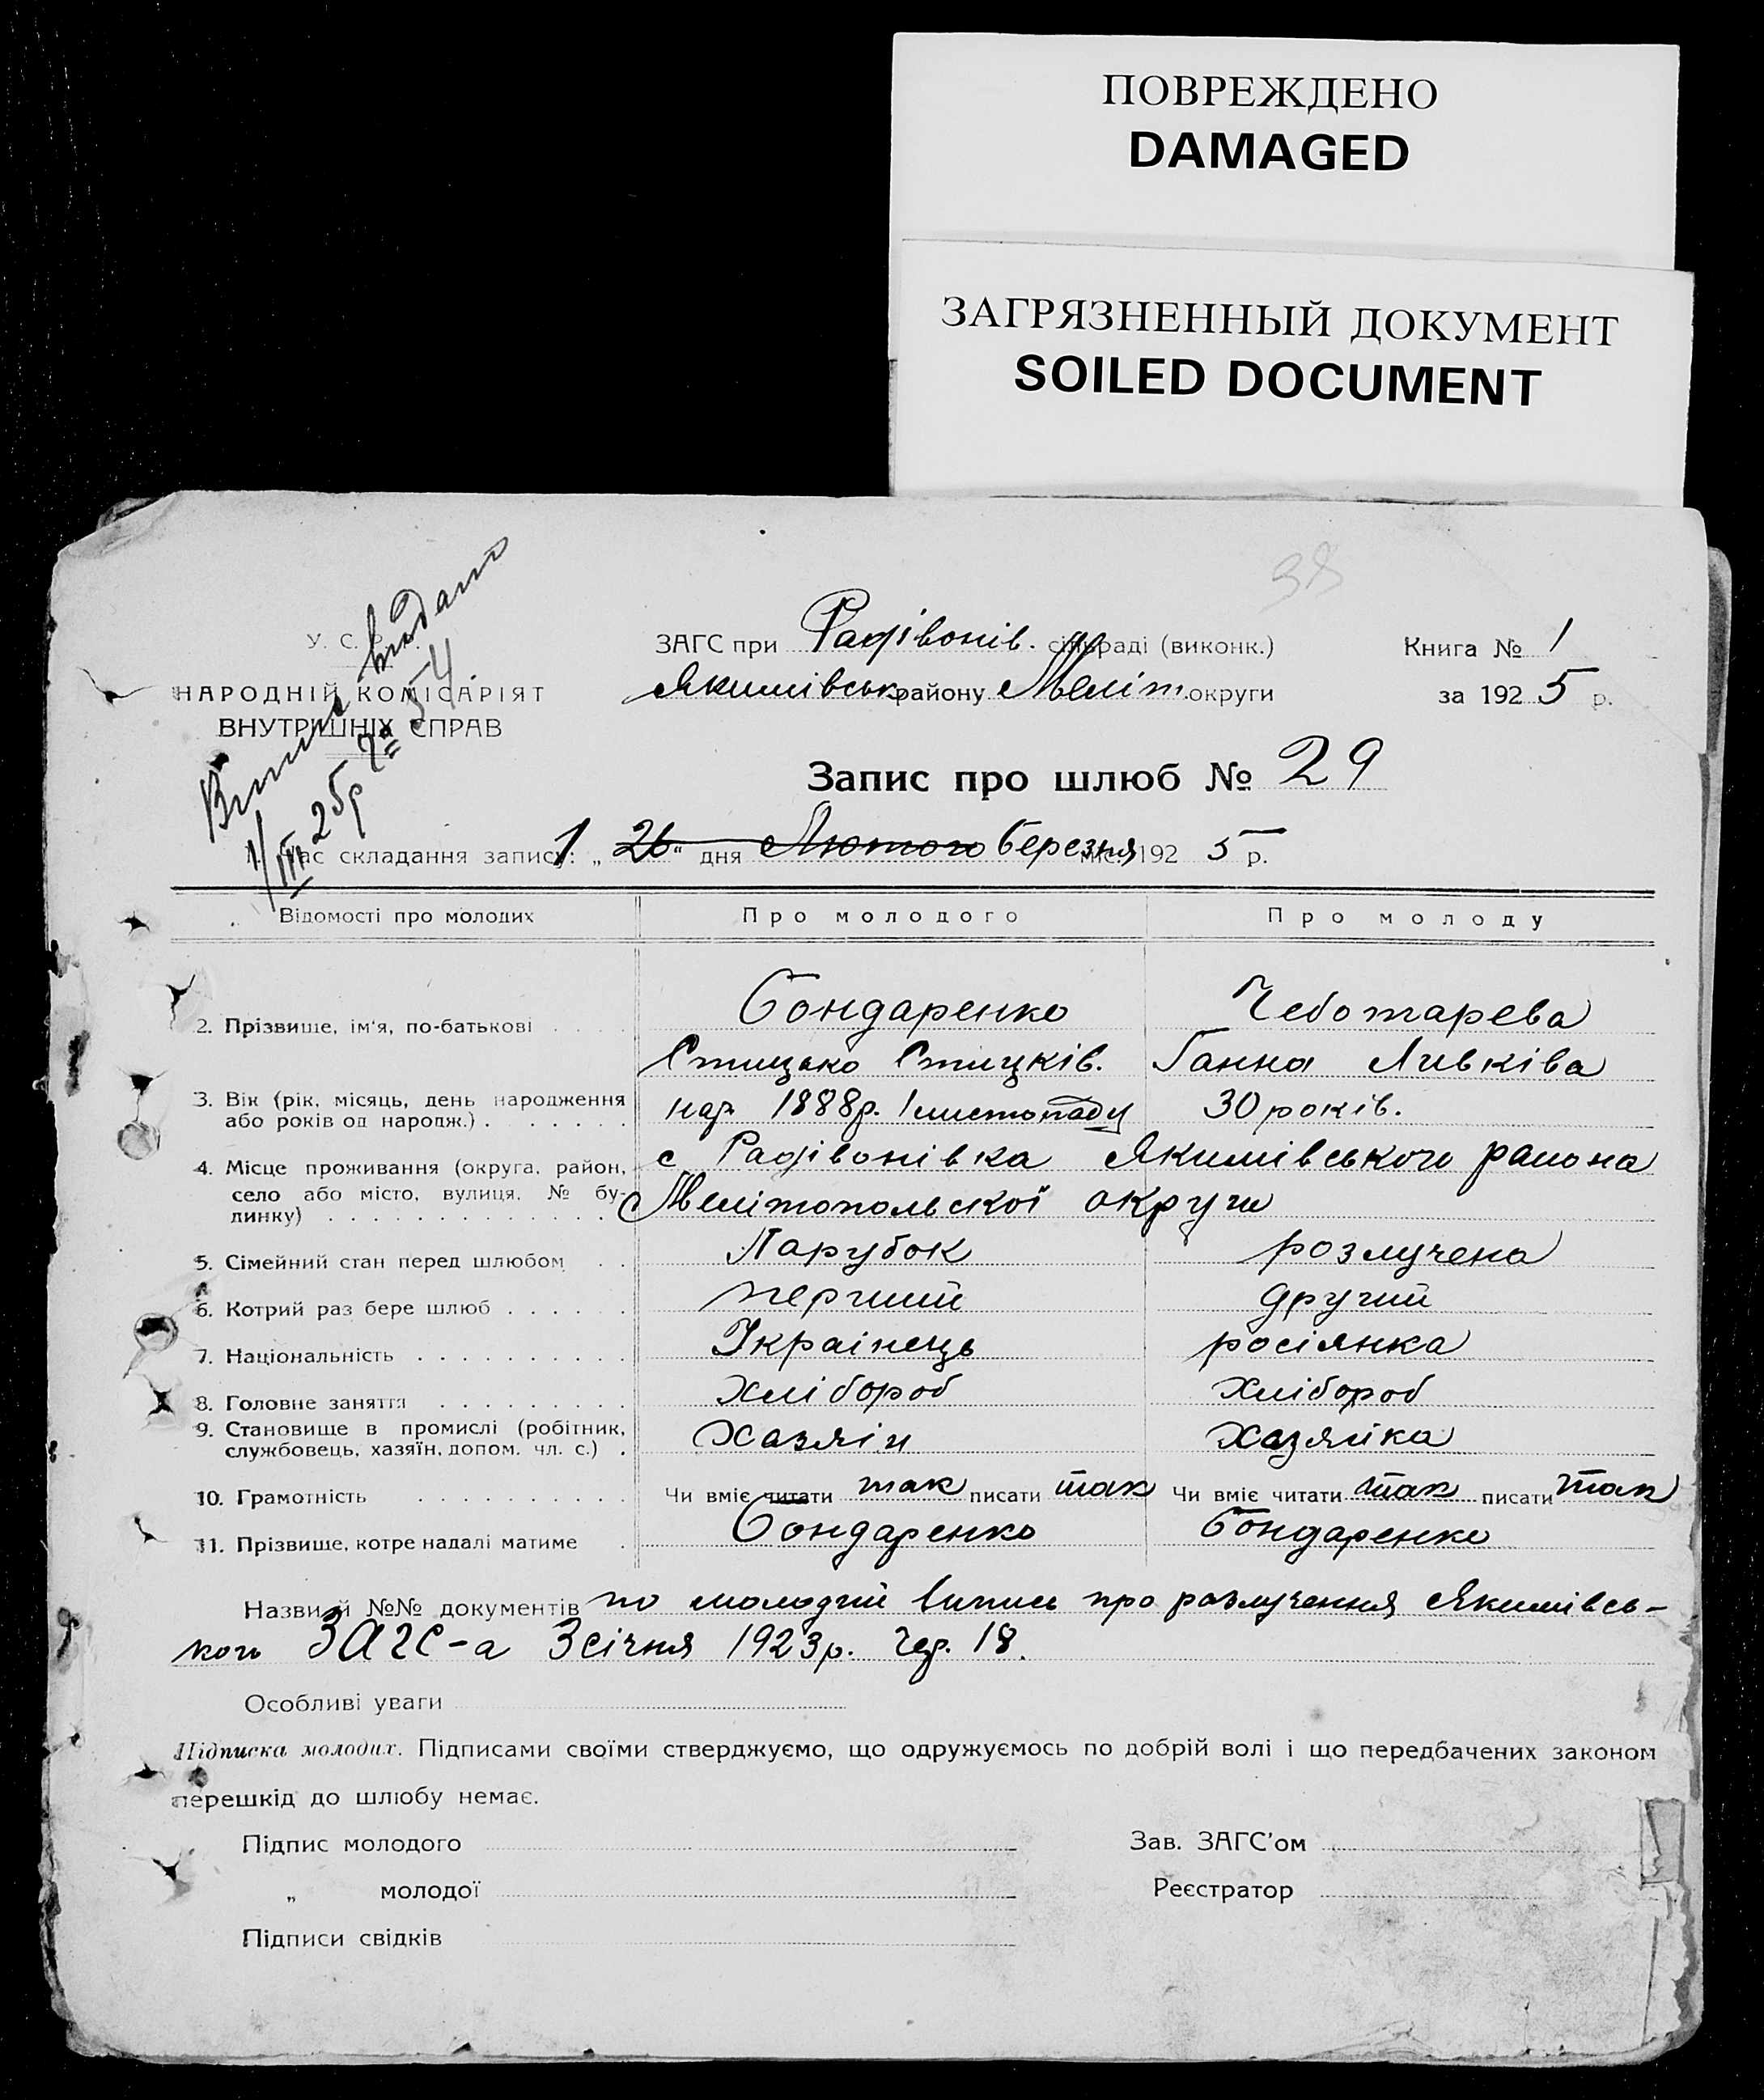 ПОВРЕЖДЕНО
DAMAGED
ЗАГРЯЗНЕННЫЙ ДОКУМЕНТ
SOILED DOCUMENT
38
Випис видано
1/III 25р. 54
У. С. Р. Р.
НАРОДНІЙ КОМІСАРІЯТ
ВНУТРИШНІХ СПРАВ
ЗАГС при Радівонів. сільраді (виконк.)
Якимівськ району Меліт. округи
Книга № 1
за 1925 р.
Запис про шлюб № 29
1. Час складання запису: 1 „26“ дня Лютого березня міс. 1925 р.
Відомості про молодих Про молодого Про молоду
2. Прізвище, ім'я, по-батькові Бондаренко Чеботарева
Стицько Стицків. Ганна Ливківа
3. Вік (рік, місяць, день народження або років од народж.) нар. 1888р. 1 листопаду 30 років.
4. Місце проживання (округа, район, село або місто, вулиця, № будинку) с Радівонівка Якимівського района
Мелітопольскої округи
5. Сімейний стан перед шлюбом Парубок розлучена
6. Котрий раз бере шлюб перший другий
7. Національність Українець росіянка
8. Головне заняття Хлібороб Хлібороб
9. Становище в промислі (робітник, службовець, хазяїн, допом. чл. с.) Хазяїн Хазяйка
10. Грамотність Чи вміє читати так писати так Чи вміє читати так писати так
11. Прізвище, котре надалі матиме Бондаренко Бондаренко
Назви й №№ документів по молодій випис про розлучення Якимівсь-
кого ЗАГС-а 3 січня 1923р. чер. 18.
Особливі уваги
Підписка молодих. Підписами своїми стверджуємо, що одружуємось по добрій волі і що передбачених законом
перешкід до шлюбу немає.
Підпис молодого Зав. ЗАГС'ом
„ молодої Реєстратор
Підписи свідків